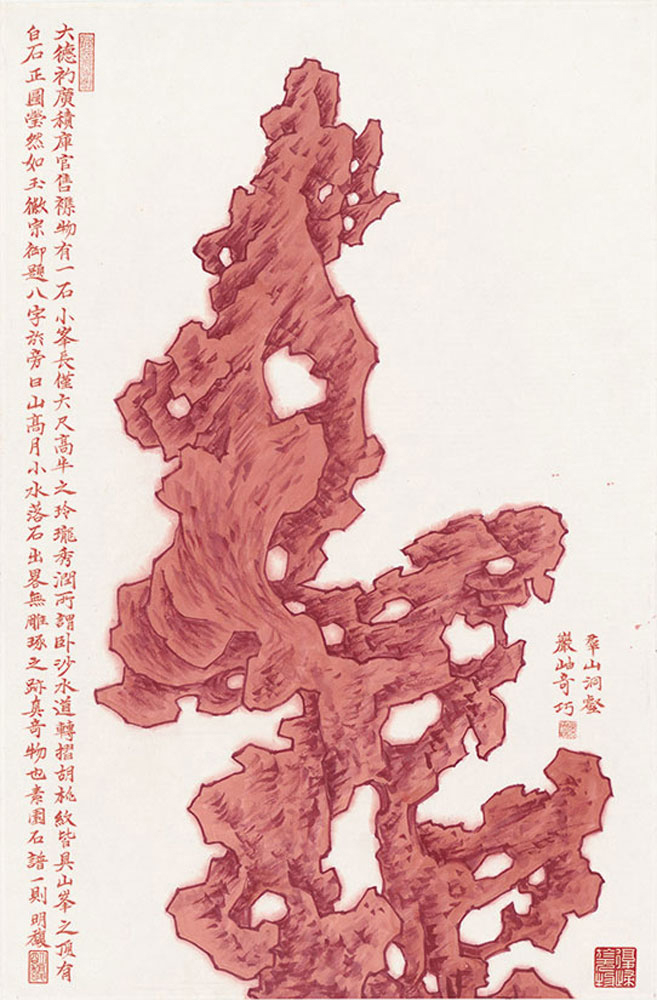 大德初廣積庫官售雜物有一石小峯長僅六尺高半之玲瓏秀潤所謂卧沙水道轉摺胡桃紋皆具山峯之頂有
白石正圓瑩然如玉徽宗御題八字於旁曰山高月小水落石出畧無雕琢之跡真奇物也素園石譜一則 明馥
羣山洞壑
巖岫奇巧